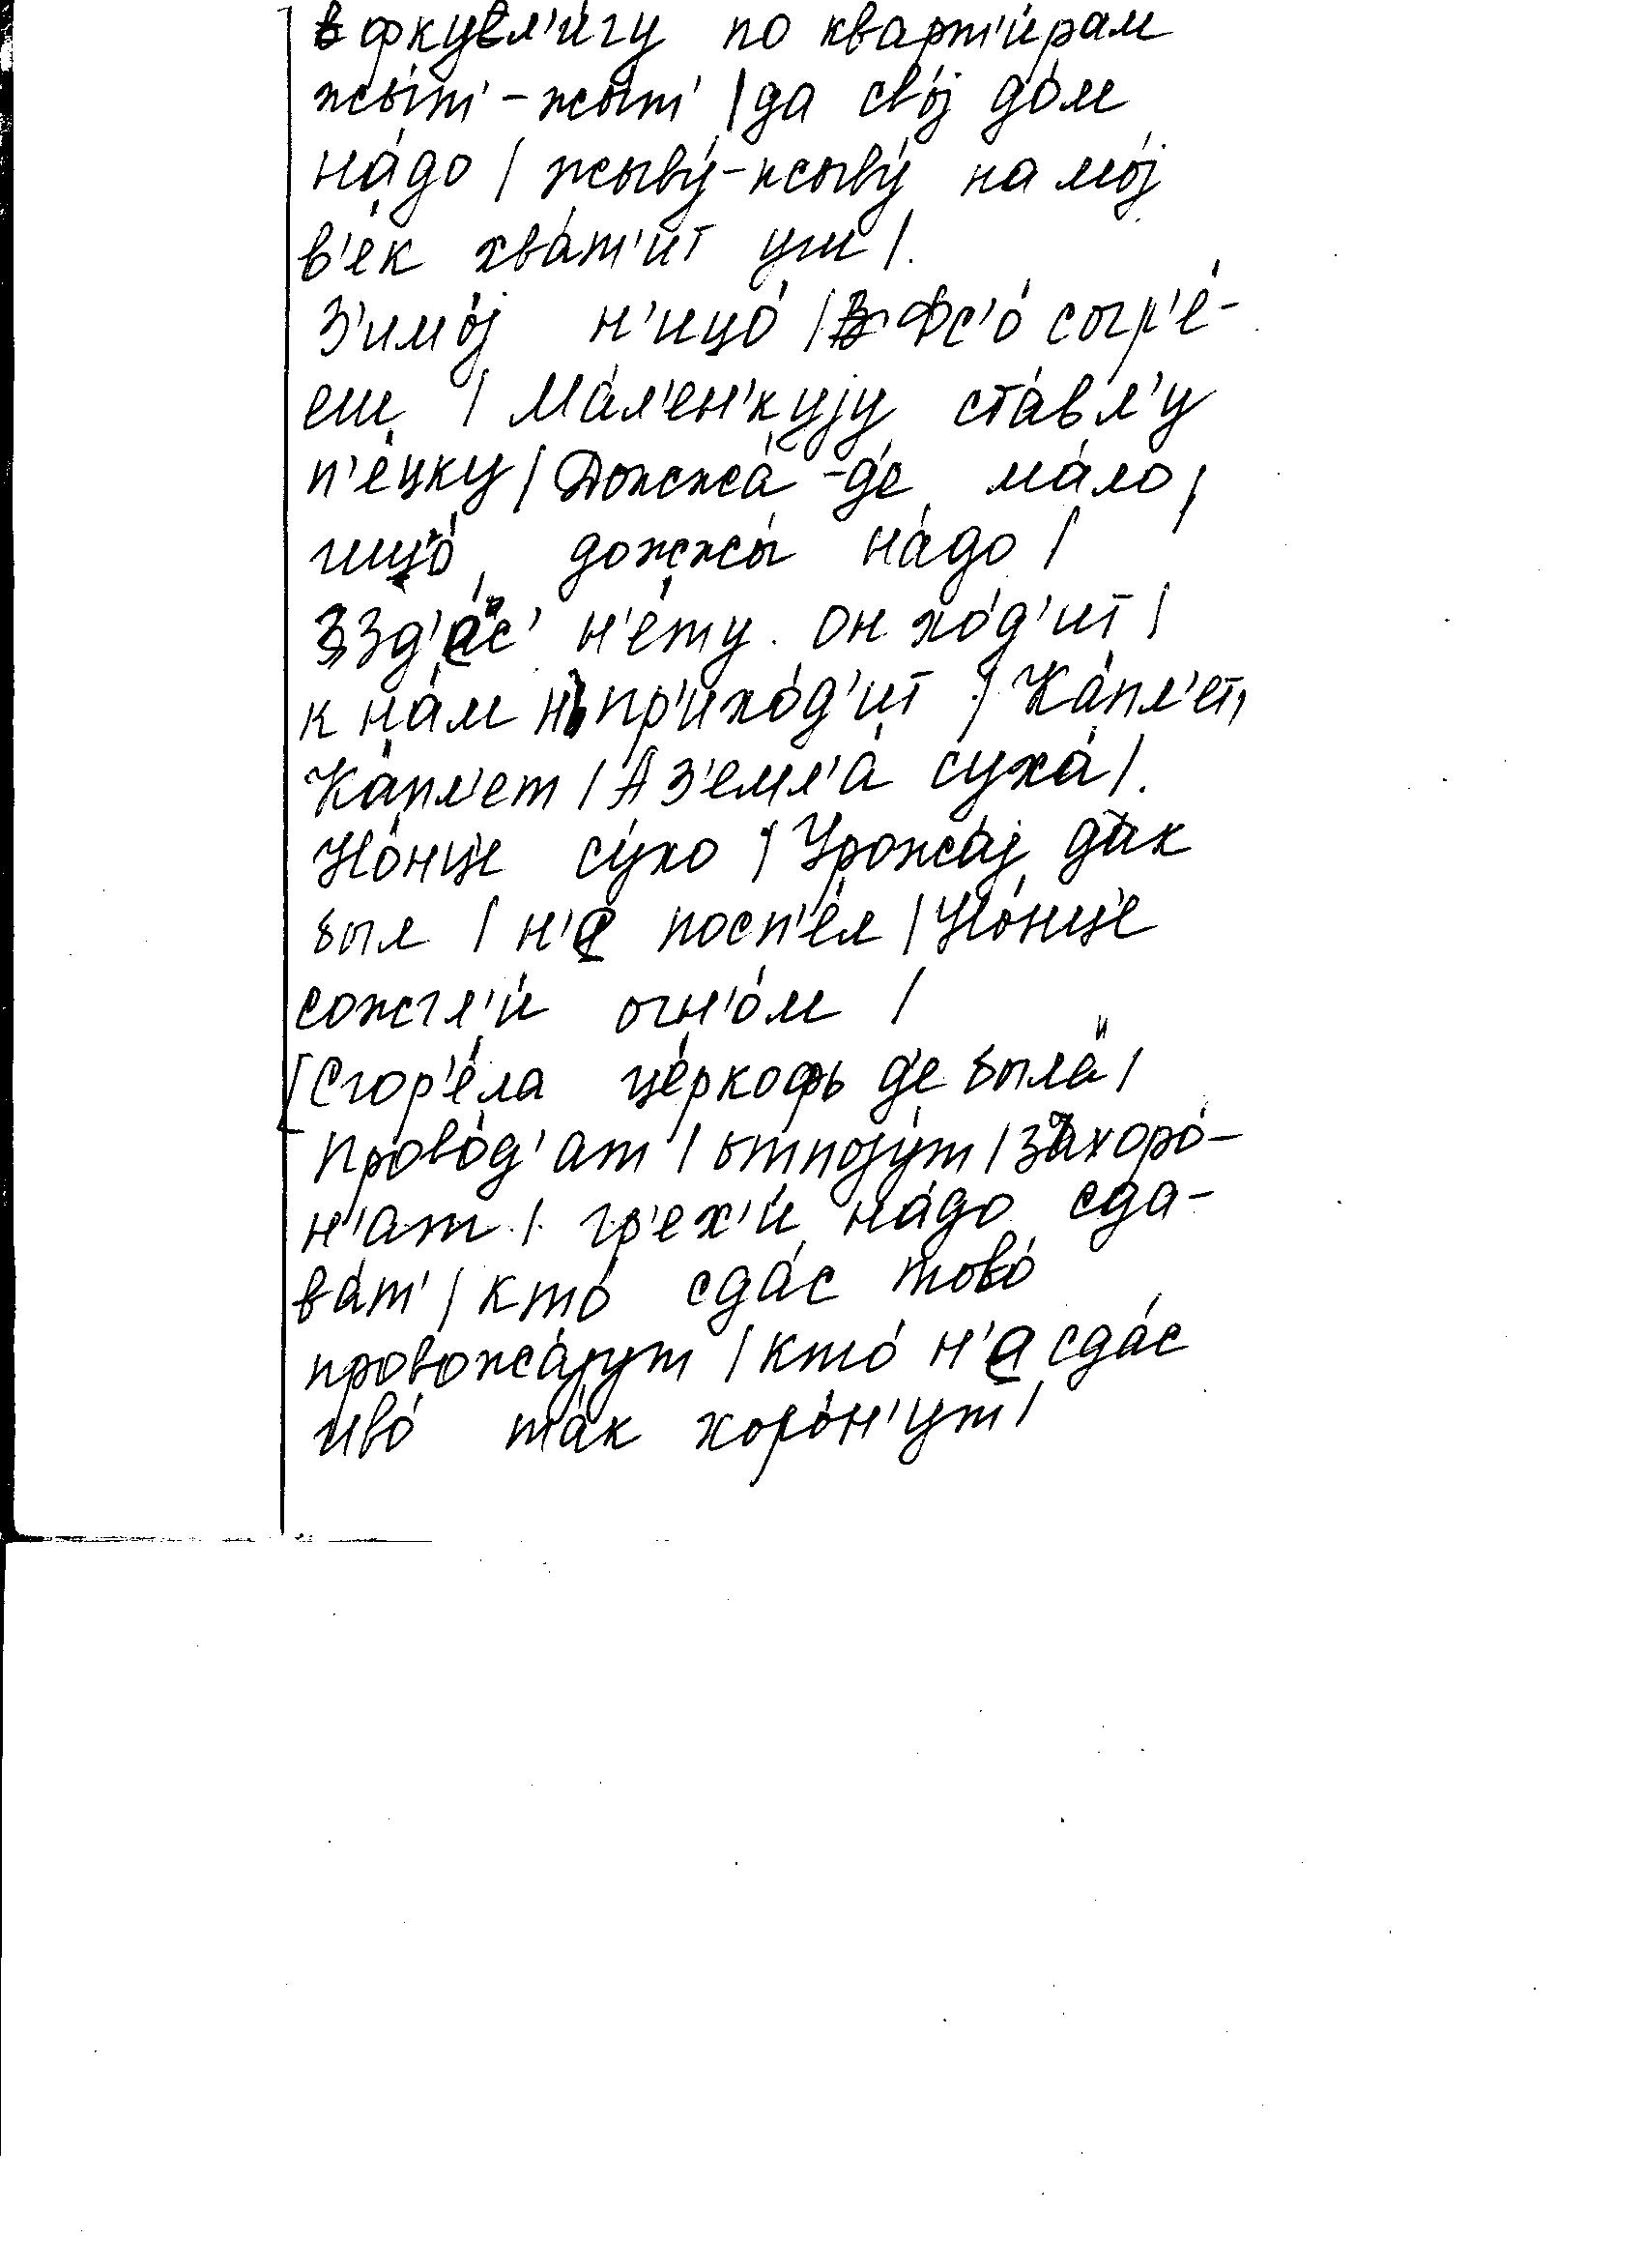 фкувл'и́гу по кварт'и́рам
жы́т'-жы́т' | да сво́ј до́м
на́до | жыву́-жыву́ на мо́ј
в'е́к хва́т'ит уш |.
З'имо́ј н'ицо́ | Фс'о́ согр'е́-
еш | Ма́л'ен'куjу ста́вл'у
п'е́цку | Дожжа́-де ма́ло |
ишцо́ дожжы́ на́до |
Зд'е́с' н'е́ту. Он хо́д'ит |
к на́м н' пр'ихо́д'ит | Ка́пл'ет,
Ка́пл'ет | А з'емл'а́ суха́ |.
Но́нц'е су́хо | Урожа́ј да́к
был | н'е посп'е́л | Но́нц'е
сожгл'и́ огн'о́м |
Сгор'е́ла це́ркофь д'е была́ |
Прово́д'ат | отпоjу́т | захоро́-
н'ат | гр'ех'и́ на́до сда-
ва́т' | кто́ сда́с тово́
провожа́jут | кто́ н'е сда́с
иво́ та́к хоро́н'ут |